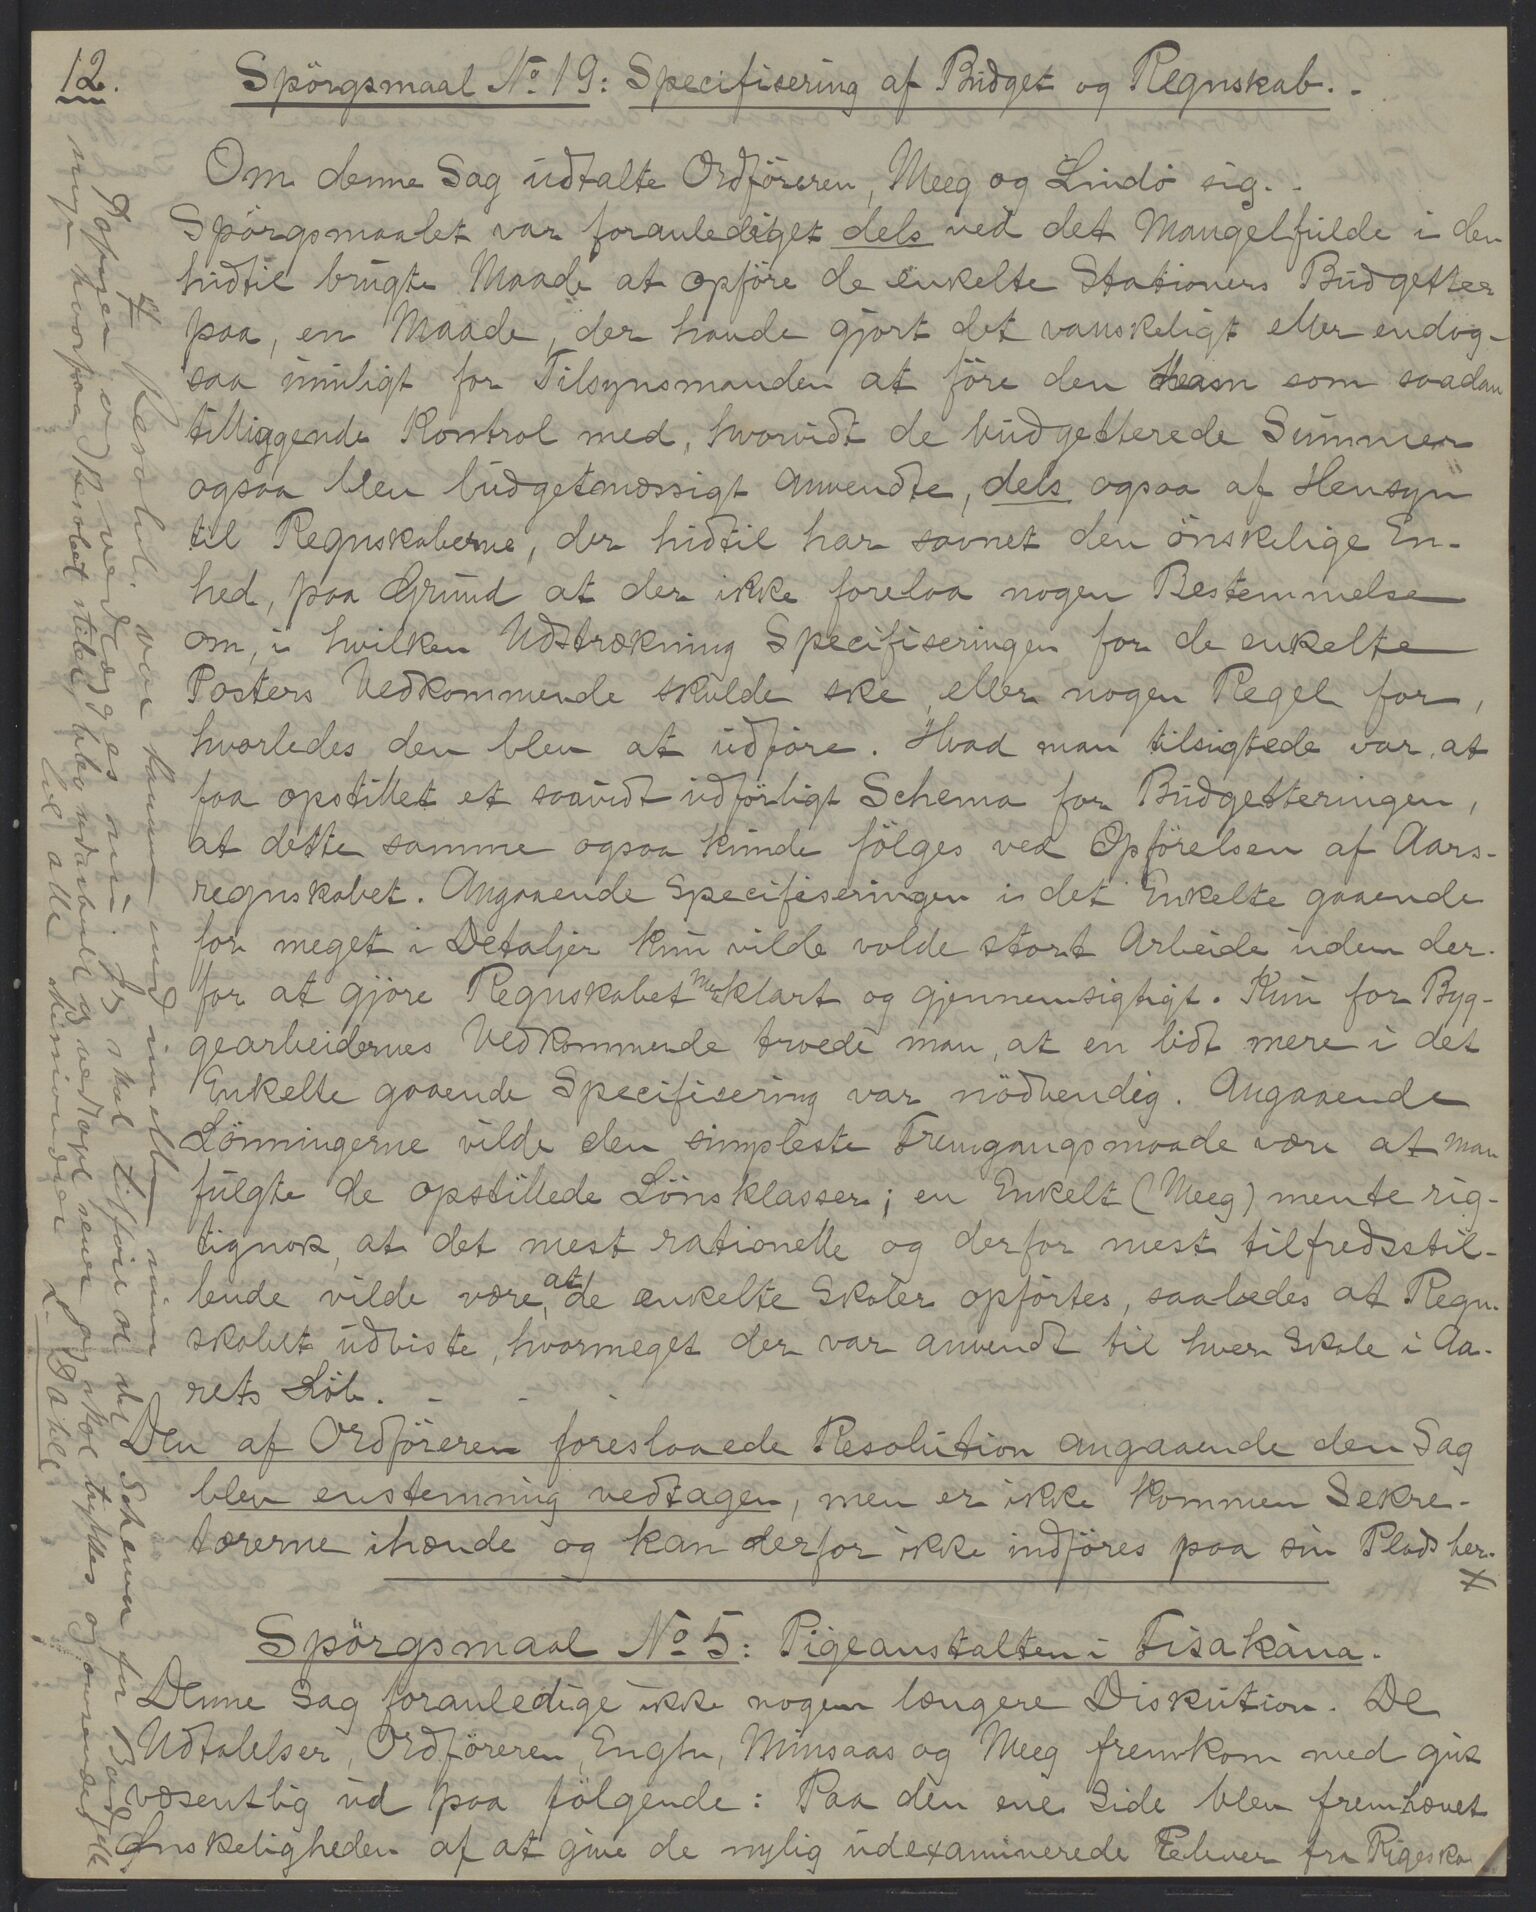 12.
Spörgsmaal No 19: Specifisering af Budget og Regnskab. -
Om denne Sag udtalte Ordföreren, Meeg og Lindö sig. -
Spörgsmaalet var foranlediget dels ved det Mangelfulde i den
hidtil brugte Maade at opföre de enkelte Stationers Budgetter
paa, en Maade, der havde gjort det vanskeligt eller endog-
saa umuligt for Tilsynsmanden at före den ham som saadan
tilliggende Kontrol med, hvorvidt de budgetterede Summer
ogsaa blev budgetmæssigt anvendte, dels ogsaa af Hensyn
til Regnskaberne, der hidtil har savnet den önskelige En-
hed, paa Grund at der ikke forelaa nogen Bestemmelse
om, i hvilken Udstrækning Specifiseringen for de enkelte
Posters Vedkommende skulde ske, eller nogen Regel for,
hvorledes den blev at udföre. Hvad man tilsigtede var, at
faa opstillet et saavidt udförligt Schema for Budgetteringen,
at dette samme ogsaa kunde fölges ved Opförelsen af Aars-
regnskabet. Angaaende Specifiseringen i det Enkelte gaaende
for meget i Detaljer kun vilde volde stort Arbeide uden der-
for at gjöre Regnskabet mer klart og gjennemsigtigt. Kun for Byg-
gearbeidernes Vedkommende troede man, at en lidt mere i det
Enkelte gaaende Specifisering var nödvendig. Angaaende
Lönningerne vilde den simpleste Fremgangsmaade være at man
fulgte de opstillede Lönsklasser; en Enkelt (Meeg) mente rig-
tignok, at det mest rationelle og derfor mest tilfredsstil-
lende vilde være, at de enkelte Skoler opförtes, saaledes at Regn-
skabet udviste, hvormeget der var anvendt til hver Skole i Aa-
rets Löb. - - -
Den af Ordföreren foreslaaede Resolution angaaende den Sag
blev enstemmig vedtagen, men er ikke kommen Sekre-
tærerne ihænde og kan derfor ikke indföres paa sin Plads her. X
Spörgsmaal No 5: Pigeanstalten i Fisakàna.
Denne Sag foranledige ikke nogen længere Diskution. De
Udtalelser, Ordföreren, Engh, Minsaas og Meeg fremkom med gik
væsentlig ud paa fölgende: Paa den ene Side blev fremhævet
Önskeligheden af at give de nylig udexaminerede Elever fra Pigesko
X Resolut. var kommen ind imellem mine
Papirer og vedlægges nu. Jeg skal tilföie at det Schema for Budgett.
hvorpaa Resolut. sikter, blev udarbeidet og vedtaget senere og skal trykkes og omsendes
til alle Missionærer L. Dahle